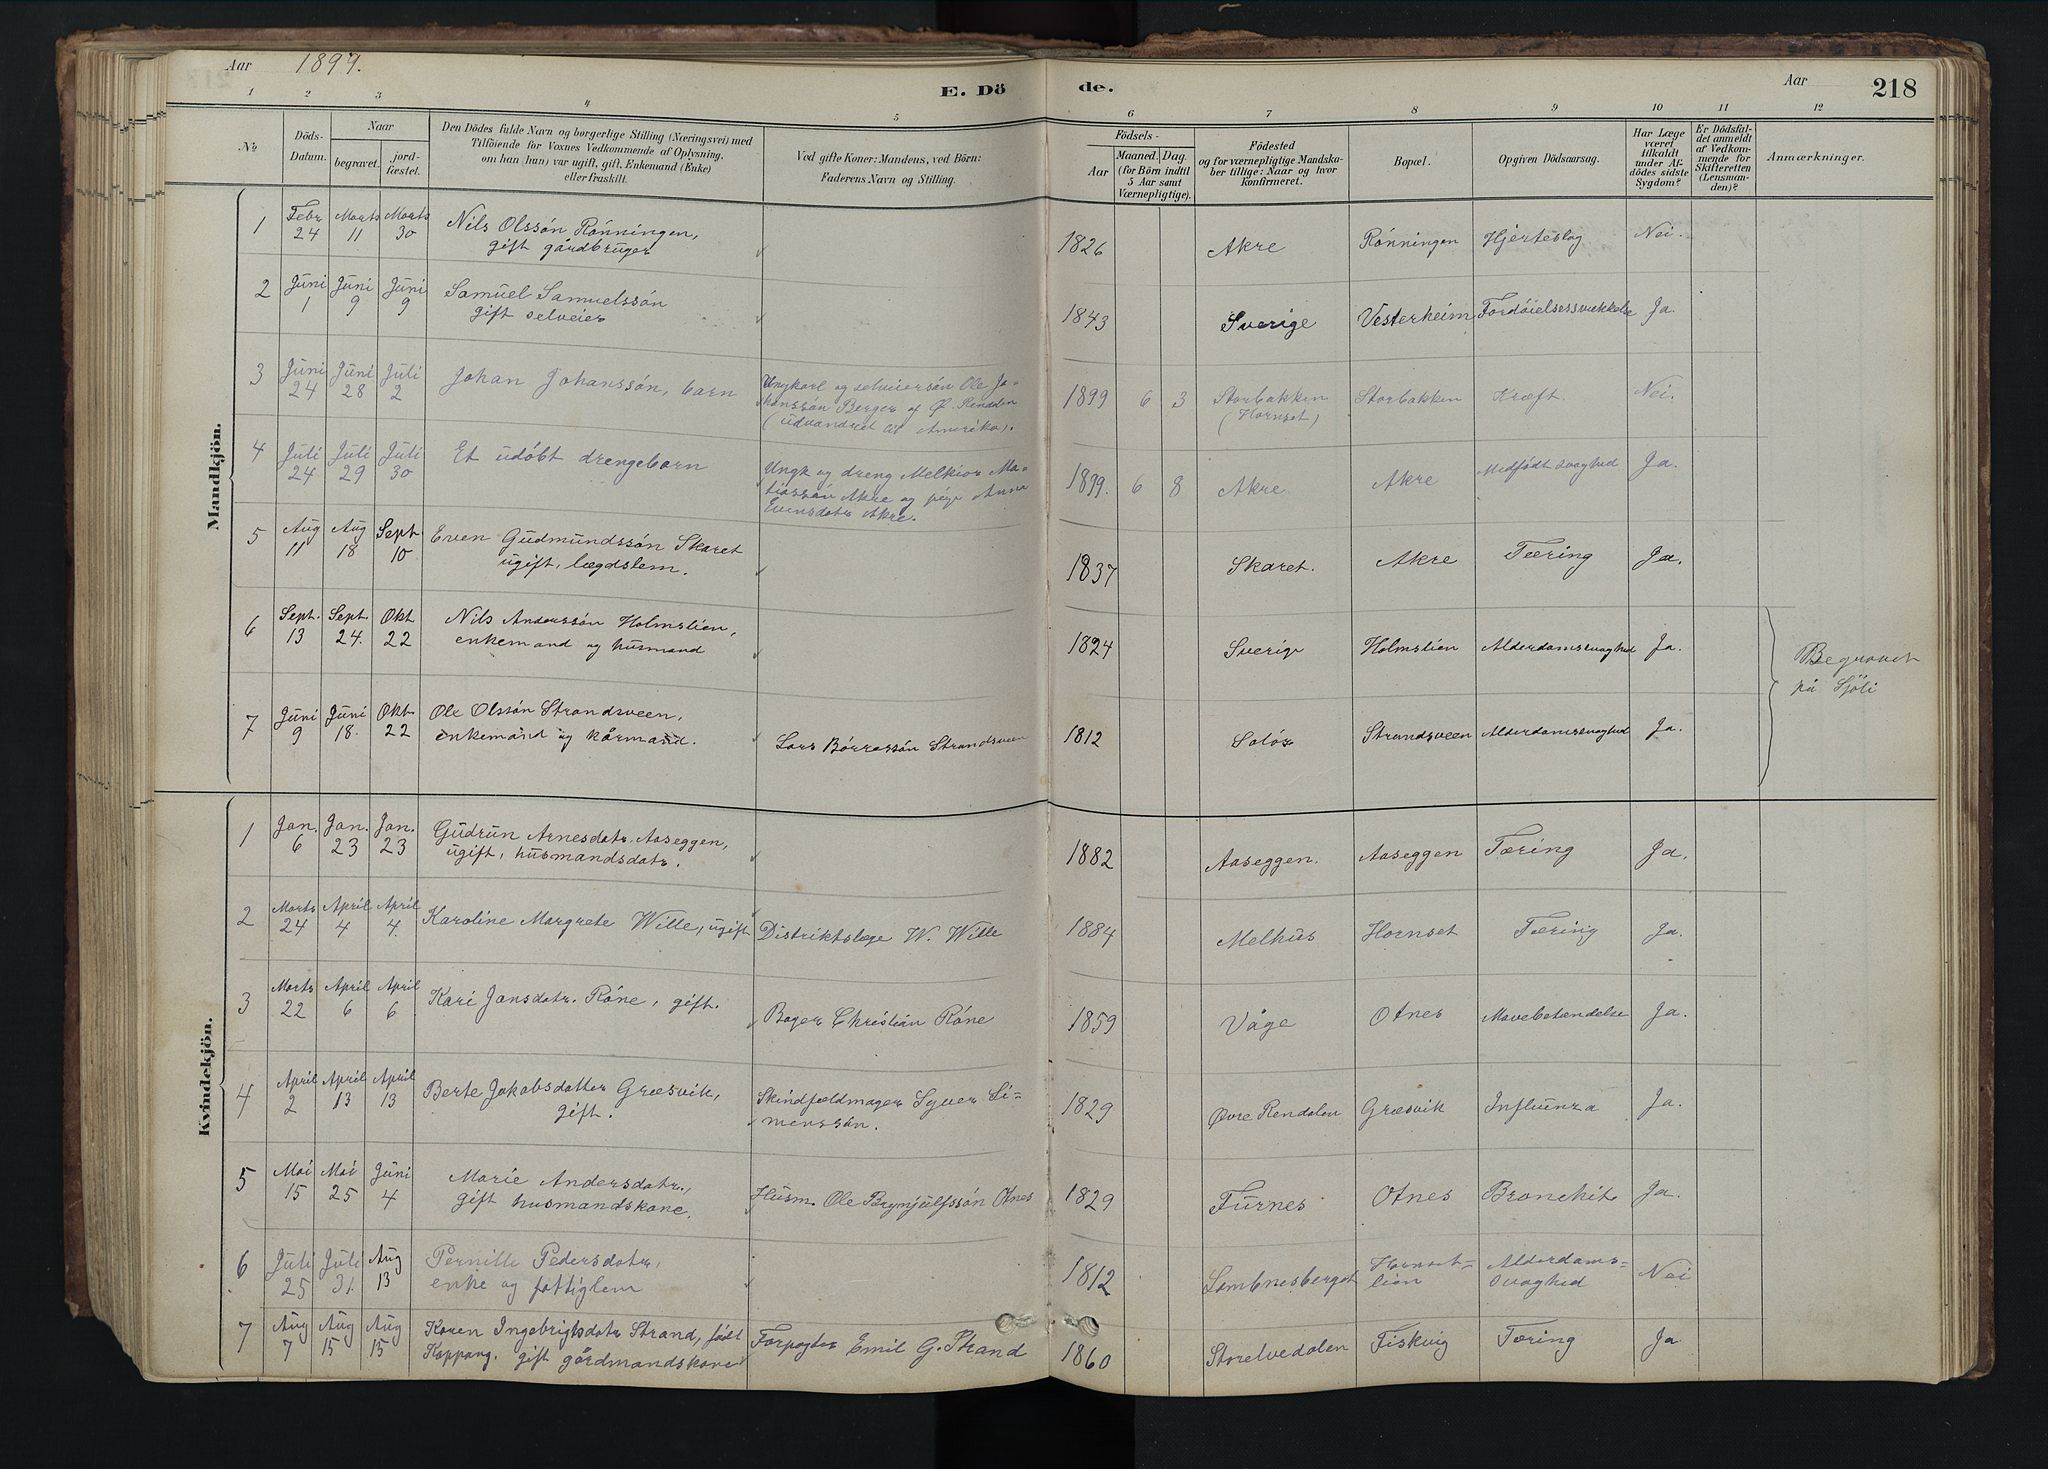 Aar 1899.
E. Döde.
Aar
218
1 2 3 4 5 6 7 8 9 10 11 12
No.
Döds-Datum.
Naar
begravet.
jord-fæstet.
Den Dödes fulde Navn og borgerlige Stilling (Næringsvei) med
Tilföiende for Voxnes Vedkommende af Oplysning,
om han (hun) var ugift, gift, Enkemand (Enke)
eller fraskilt.
Ved gifte Koner: Mandens, ved Börn:
Faderens Navn og Stilling.
Födsels-
Aar
Maaned. Dag.
(for Börn indtil
5 Aar samt
Værnepligtige).
Födested
og for værnepligtige Mandska-
ber tillige: Naar og hvor
Konfirmeret.
Bopæl.
Opgiven Dödsaarsag.
Har Læge
været
tilkaldt
under Af-
dödes sidste
Sygdom?
Er Dödsfal-
det anmeldt
af Vedkom-
mende for
Skifteretten
(Lensman-
den)?
Anmærkninger.
Mandkjön.
1 Febr 24 Marts 11 Marts 30 Nils Olssön Rönningen,
gift gårdbruger
1826 Akre Rönningen Hjerteslag Nei.
2 Juni 1 Juni 9 Juni 9 Samuel Samuelssön
gift selveier
1843 Sverige Vesterheim Fordöielsessvækkelse Ja.
3 Juni 24 Juni 28 Juli 2 Johan Johanssön, barn
Ungkarl og selveiersön Ole Ja-
konssön Berger af Ø. Rendalen
(udvandret til Amerika).
1899 6 3 Storbakken
(Hornset)
Storbakken Kræft. Nei.
4 Juli 24 Juli 29 Juli 30 Et udöbt drengebarn
Ungk og dreng Melkior Ma-
tiassön Akre og pige Anna
Evensdatr Akre.
1899. 6 8 Akre. Akre Medfödt svaghed Ja.
5 Aug 11 Aug 18 Sept. 10 Even Gudmundssön Skaret
ugift, lægdslem.
1837 Skaret. Akre Tæring Ja.
6 Sept. 13 Sept. 24. Okt 22 Nils Anderssön Holmslien,
enkemand og husmand
1824 Sverige Holmslien Alderdomssvaghed Ja.
Begravet
på Sjöli
7 Juni 9 Juni 18. Okt. 22 Ole Olssön Strandsveen,
enkemand og kårmand.
Lars Börressön Strandsveen
1812 Solör Strandsveen Alderdomssvaghed Ja.
Kvindekjön.
1 Jan. 6 Jan. 23 Jan. 23 Gudrun Arnesdatr. Aaseggen,
ugift, husmandsdatr.
1882 Aaseggen. Aaseggen Tæring Ja.
2 Marts 24 April 4 April 4. Karoline Margrete Wille, ugift
Distriktslæge W. Wille
1884 Melhus Hornset Tæring Ja.
3 Marts 22 April 6 April 6 Kari Jonsdatr. Röne, gift.
Bager Christian Röne
1859 Våge Otnes Mavebetændelse Ja.
4 April 2 April 13 April 13 Berte Jakobsdatter Græsvik,
gift.
Skindfældmager Syver Si-
menssön.
1829 Øvre Rendalen Græsvik Influenza Ja.
5 Mai 15 Mai 25 Juni 4 Marie Andersdatr.,
gift husmandskone.
Husm. Ole Brynjulfssön Otnes
1829 Furnes Otnes Bronchit Ja.
6 Juli 25 Juli 31. Aug 13 Pernille Pedersdatr,
enke og fattiglem
1812 Lombnesberget Hornset-
lien
Alderdoms-
svaghed
Nei
7 Aug 7 Aug 15 Aug 15 Karen Ingebrigtsdatr Strand, födt
Koppang. gift gårdmandskone
Forpagter Emil G. Strand
1860 Storelvedalen Fiskvig Tæring Ja